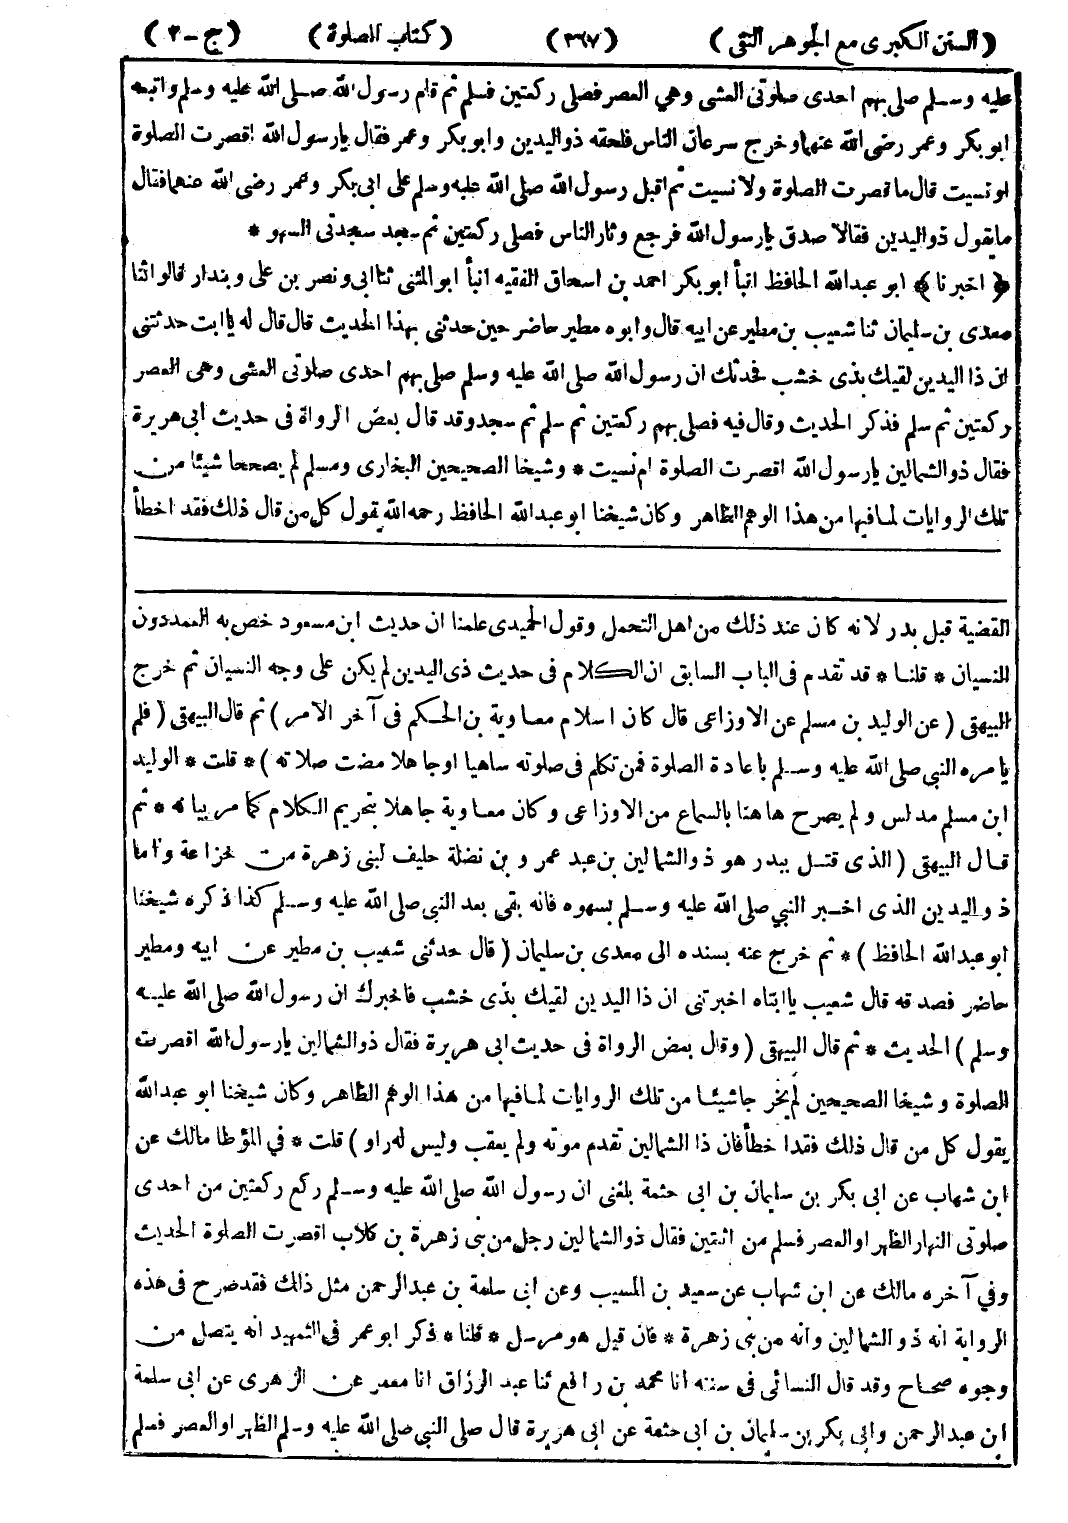 (السنن الكبرى مع الجوهر النقى) (٣٦٧) (كتاب الصلوة) (ج - ٢)
عليه وسلم صلى بهم احدى صلوتى العشى وهي العصر فصلى ركعتين فسلم ثم قام رسول الله صلى الله عليه وسلم واتبعه
ابو بكر وعمر رضى الله عنهما وخرج سرعان الناس فلحقه ذواليدين وابو بكر وعمر فقال يا رسول الله اقصرت الصلوة
او نسيت قال ما قصرت الصلوة ولا نسيت ثم اقبل رسول الله صلى الله عليه وسلم على ابى بكر وعمر رضى الله عنهما فقال
ما يقول ذواليدين فقالا صدق يا رسول الله فرجع وثار الناس فصلى ركعتين ثم سجد سجدتى السهو *
﴿ اخبرنا ﴾ ابو عبدالله الحافظ انبأ ابو بكر احمد بن اسحاق الفقيه انبأ ابو المثنى ثنا ابى ونصر بن على وبندار قالوا ثنا
معدى بن سليمان ثنا شعيب بن مطير عن ابيه قال وابوه مطير حاضر حين حدثنى بهذا الحديث قال قال له يا ابت حدثتنى
ان ذا اليدين لقيك بذى خشب فحدثك ان رسول الله صلى الله عليه وسلم صلى بهم احدى صلوتى العشى وهى العصر
ركعتين ثم سلم فذكر الحديث وقال فيه فصلى بهم ركعتين ثم سلم ثم سجد وقد قال بعض الرواة فى حديث ابى هريرة
فقال ذو الشمالين يا رسول الله اقصرت الصلوة ام نسيت * وشيخا الصحيحين البخارى ومسلم لم يصححا شيئا من
تلك الروايات لما فيها من هذا الوهم الظاهر وكان شيخنا ابو عبدالله الحافظ رحمه الله يقول كل من قال ذلك فقد اخطأ
القضية قبل بدر لانه كان عند ذلك من اهل التحمل وقول الحميدى علمنا ان حديث ابن مسعود خص به العمد دون
للنسيان * قلنا * قد تقدم فى الباب السابق ان الكلام فى حديث ذى اليدين لم يكن على وجه النسيان ثم خرج
البيهقى ( عن الوليد بن مسلم عن الاوزاعى قال كان اسلام معاوية بن الحكم فى آخر الامر ) ثم قال البيهقى ( فلم
يامره النبى صلى الله عليه وسلم باعادة الصلوة فمن تكلم فى صلوته ساهيا او جاهلا مضت صلاته ) * قلت * الوليد
ابن مسلم مدلس ولم يصرح هاهنا بالسماع من الاوزاعى وكان معاوية جاهلا بتحريم الكلام كما مر بيانه * ثم
قال البيهقى ( الذى قتل ببدر هو ذو الشمالين بن عبد عمرو بن نضلة حليف لبنى زهرة من خزاعة واما
ذو اليدين الذى اخبر النبي صلى الله عليه وسلم بسهوه فانه بقى بعد النبى صلى الله عليه وسلم كذا ذكره شيخنا
ابو عبدالله الحافظ ) * ثم خرج عنه بسنده الى معدى بن سليمان ( قال حدثنى شعيب بن مطير عن ابيه ومطير
حاضر فصدقه قال شعيب يا ابتاه اخبرتنى ان ذا اليدين لقيك بذى خشب فاخبرك ان رسول الله صلى الله عليه
وسلم ) الحديث * ثم قال البيهقى ( وقال بعض الرواة فى حديث ابى هريرة فقال ذو الشمالين يا رسول الله اقصرت
الصلوة وشيخا الصحيحين لم يخرجا شيئا من تلك الروايات لما فيها من هذا الوهم الظاهر وكان شيخنا ابو عبدالله
يقول كل من قال ذلك فقد اخطأ فان ذا الشمالين تقدم موته ولم يعقب وليس له راو ) قلت * في المؤطا مالك عن
ابن شهاب عن ابى بكر بن سليمان بن ابى حثمة بلغنى ان رسول الله صلى الله عليه وسلم ركع ركعتين من احدى
صلوتى النهار الظهر او العصر فسلم من اثنتين فقال ذو الشمالين رجل من بنى زهرة بن كلاب اقصرت الصلوة الحديث
وفي آخره مالك عن ابن شهاب عن سعيد بن المسيب وعن ابى سلمة بن عبدالرحمن مثل ذالك فقد صرح فى هذه
الرواية انه ذو الشمالين وانه من بنى زهرة * فان قيل هو مرسل * قلنا * ذكر ابو عمر فى التمهيد انه يتصل من
وجوه صحاح وقد قال النسائى فى سننه انا محمد بن رافع ثنا عبد الرزاق انا معمر عن الزهرى عن ابى سلمة
ابن عبدالرحمن وابى بكر بن سليمان بن ابى حثمة عن ابى هريرة قال صلى النبي صلى الله عليه وسلم الظهر او العصر فسلم